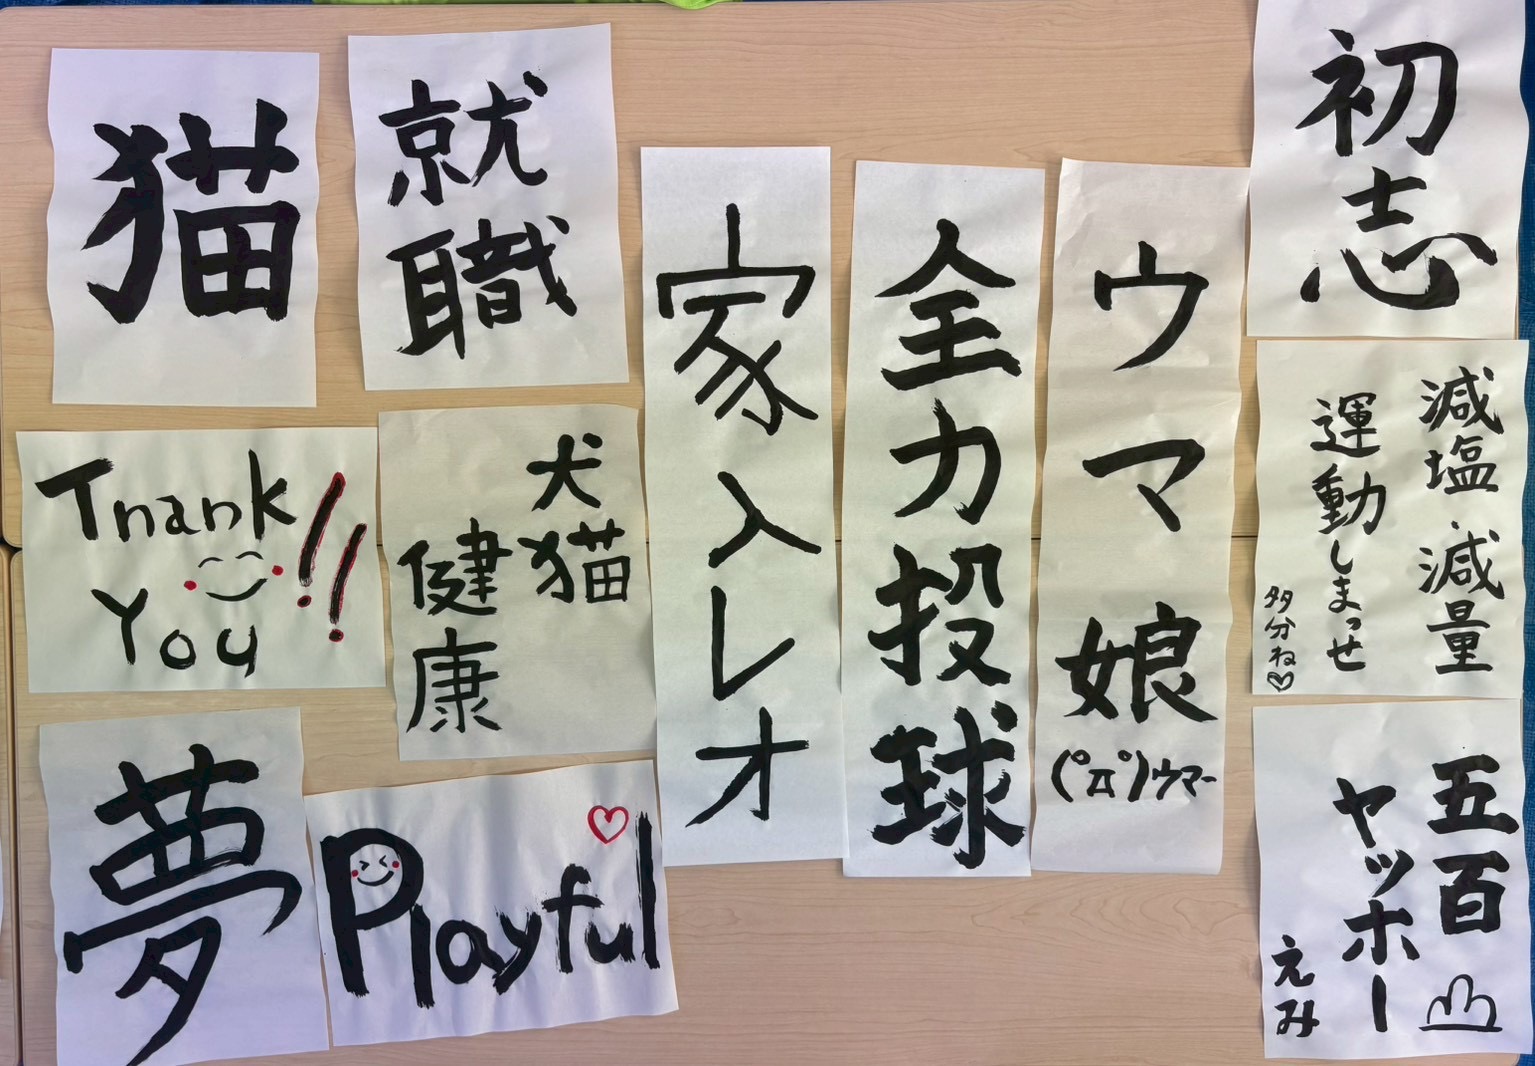 初志
減塩減量
運動しまっせ
多分ね♡
五百
ヤッホー
えみ
ウマ娘
(゚Д゚)ウマー
全力投球
家入レオ
就職
犬猫
健康
猫
Thank
You!!
夢
Playful